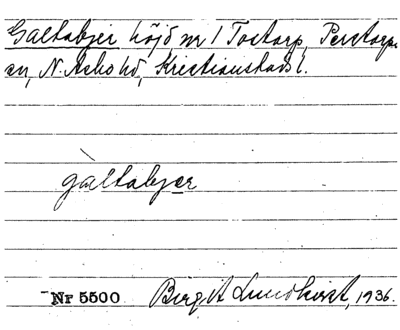 Galtabjer höjd nr 1 Tostarp, Perstorps
sn, N. Åsbo hd, Kristianstads l.
gàltabjer
Nr 5500 Birgit Lundkvist, 1936.